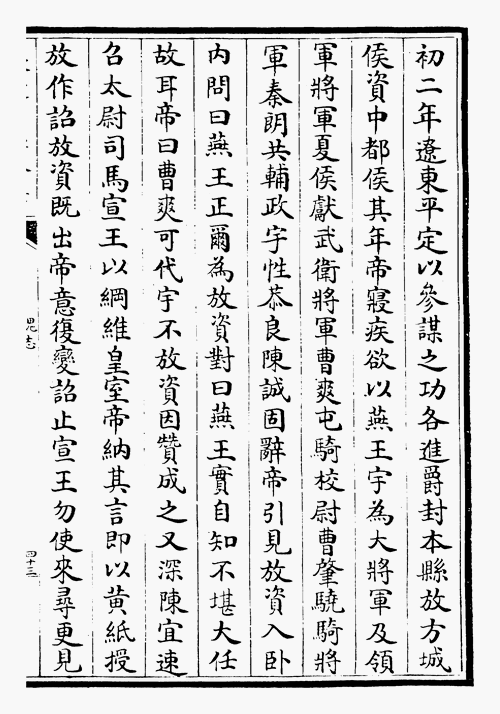 初二年遼東平定以參謀之功各進爵封本縣放方城
侯資中都侯其年帝寢疾欲以燕王宇為大將軍及領
軍將軍夏侯獻武衛將軍曹爽屯騎校尉曹肇驍騎將
軍秦朗共輔政宇性恭良陳誠固辭帝引見放資入卧
内問曰燕王正爾為放資對曰燕王實自知不堪大任
故耳帝曰曹爽可代宇不放資因贊成之又深陳宜速
召太尉司馬宣王以綱維皇室帝納其言即以黄紙授
放作詔放資既出帝意復變詔止宣王勿使來尋更見
魏志
四十三